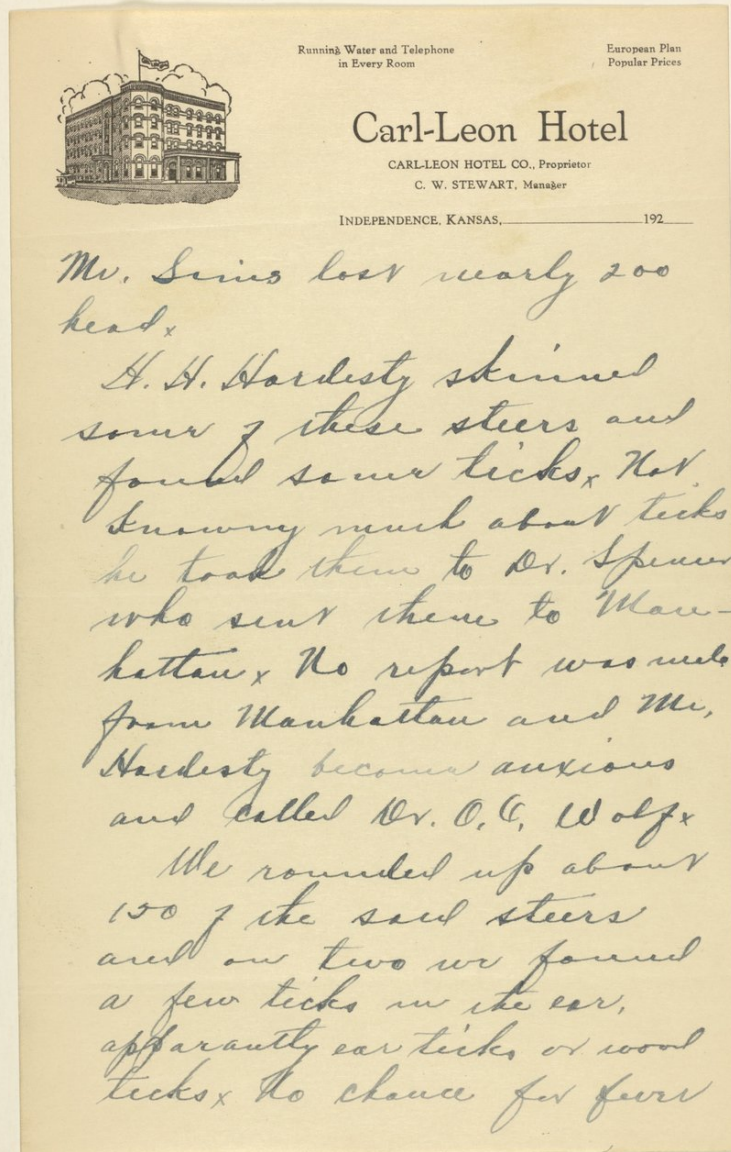 Running Water and Telephone
in Every Room
European Plan
Popular Prices
Carl-Leon Hotel
CARL-LEON HOTEL CO., Proprietor
C. W. STEWART, Manager
INDEPENDENCE, KANSAS, 192
Mr. Sims lost nearly 200
head x
H. H. Hardesty skinned
some of these steers and
found some ticks x Not
knowing much about ticks
he took them to Dr. Spencer
who sent them to Man-
hattan x No report was made
from Manhattan and Mr.
Hardesty become anxious
and called Dr. O. C. Wolf x
We rounded up about
150 of the said steers
and on two we found
a few ticks in the ear,
apparantly ear ticks or wood
ticks x No chance for fever